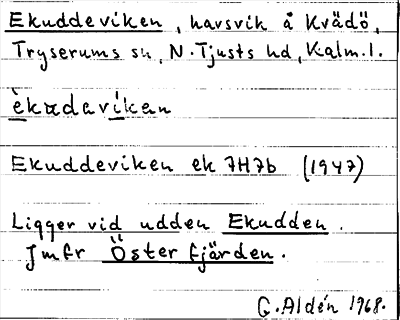 Ekuddeviken, havsvik å Kvädö,
Tryserums sn, N. Tjusts hd, Kalm. l.
èkudavíken
Ekuddeviken ek 7H7b (1947)
Ligger vid udden Ekudden.
Jmfr Österfjärden.
G. Aldén 1968.